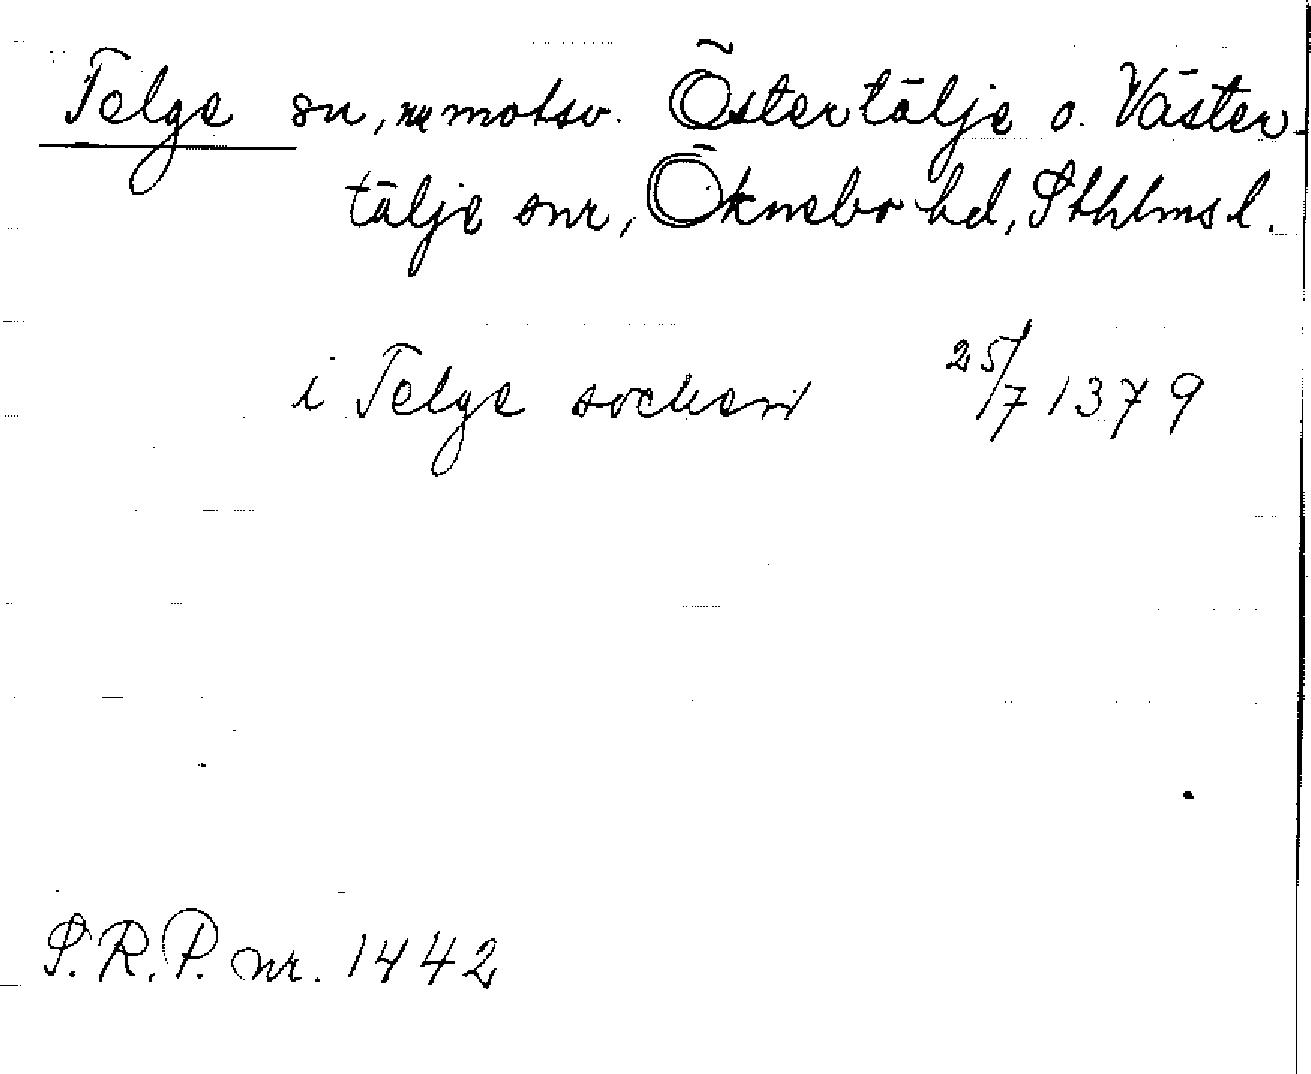 Telge sn, motsv. Östertälje o. Väster-
tälje snr, Öknebo hd, Sthlms l.
i Telge socken 25/7 1379
S.R.P. nr. 1442